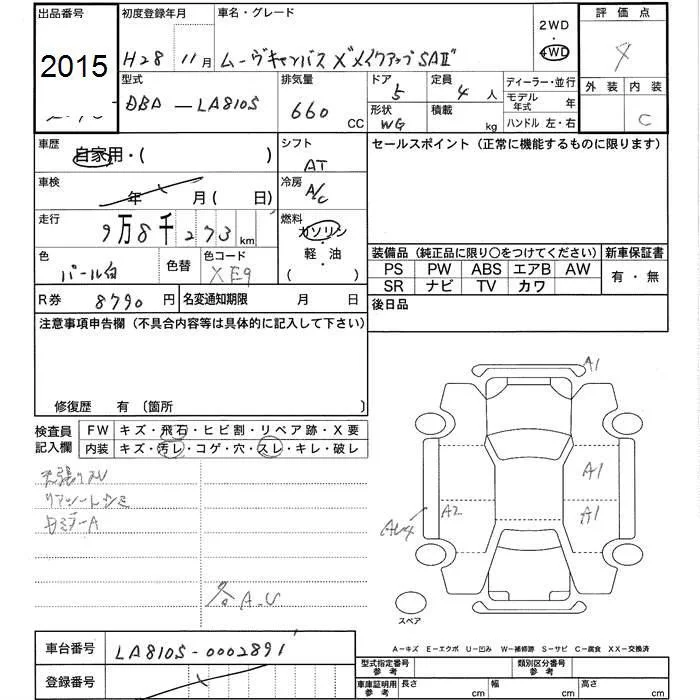 出品番号 初度登録年月 車名・グレード 2WD・4WD 評価点
2015 H28 11月 ムーヴキャンバス Xメイクアップ SAⅡ 4
型式 排気量 ドア 定員 ディーラー・並行 外装 内装
DBA-LA810S 660 CC 5 4人 モデル年式 年 C
形状 積載 ハンドル 左・右
WG kg
車歴 シフト セールスポイント(正常に機能するものに限ります)
自家用・( ) AT
車検 年 月( 日) 冷房 A/C
走行 9万8千273km 燃料 ガソリン
軽・油
( )
色 パール白 色替 色コード XE9
装備品(純正品に限り○をつけてください) 新車保証書
PS PW ABS エアB AW 有・無
SR ナビ TV カワ
R券 8790円 名変通知期限 月 日 後日品
注意事項申告欄(不具合内容等は具体的に記入して下さい)
修復歴 有 〔箇所 〕
検査員記入欄 FW キズ・飛石・ヒビ割・リペア跡・X要
内装 キズ・汚レ・コゲ・穴・スレ・キレ・破レ
リアシートシミ
各A.U
A1
A1
A2
A1
AU4
スペア
A-キズ E-エクボ U-凹み W-補修跡 S-サビ C-腐食 XX-交換済
車台番号 LA810S-0002891
登録番号
型式指定番号 参考 類別区分番号 参考
車庫証明用 参考 長さ cm 幅 cm 高さ cm